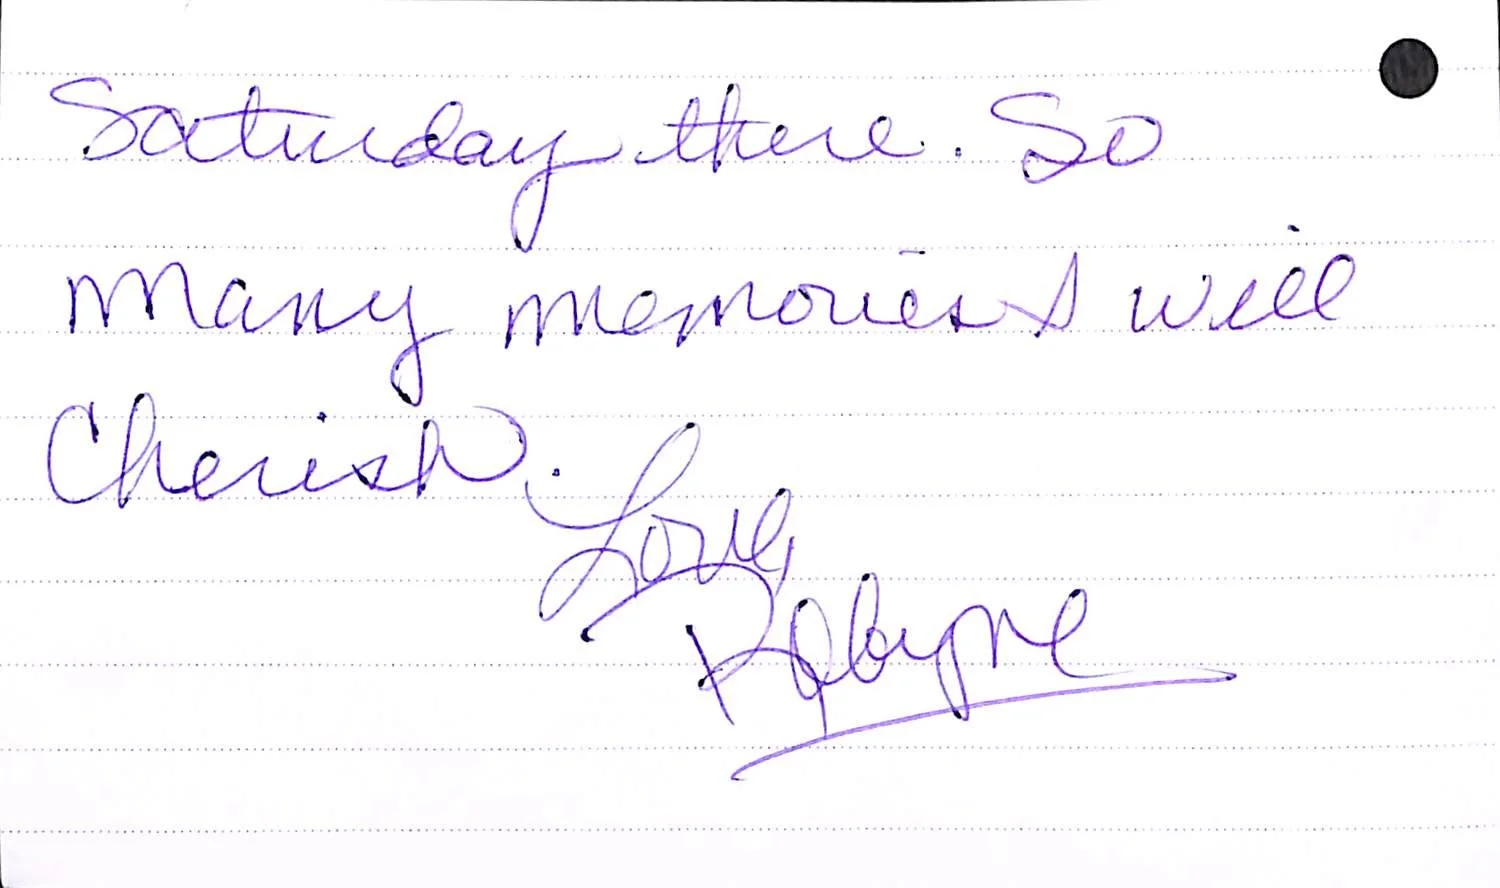 Saturday there. So
many memories I will
Cherish.
Love,
Robyne